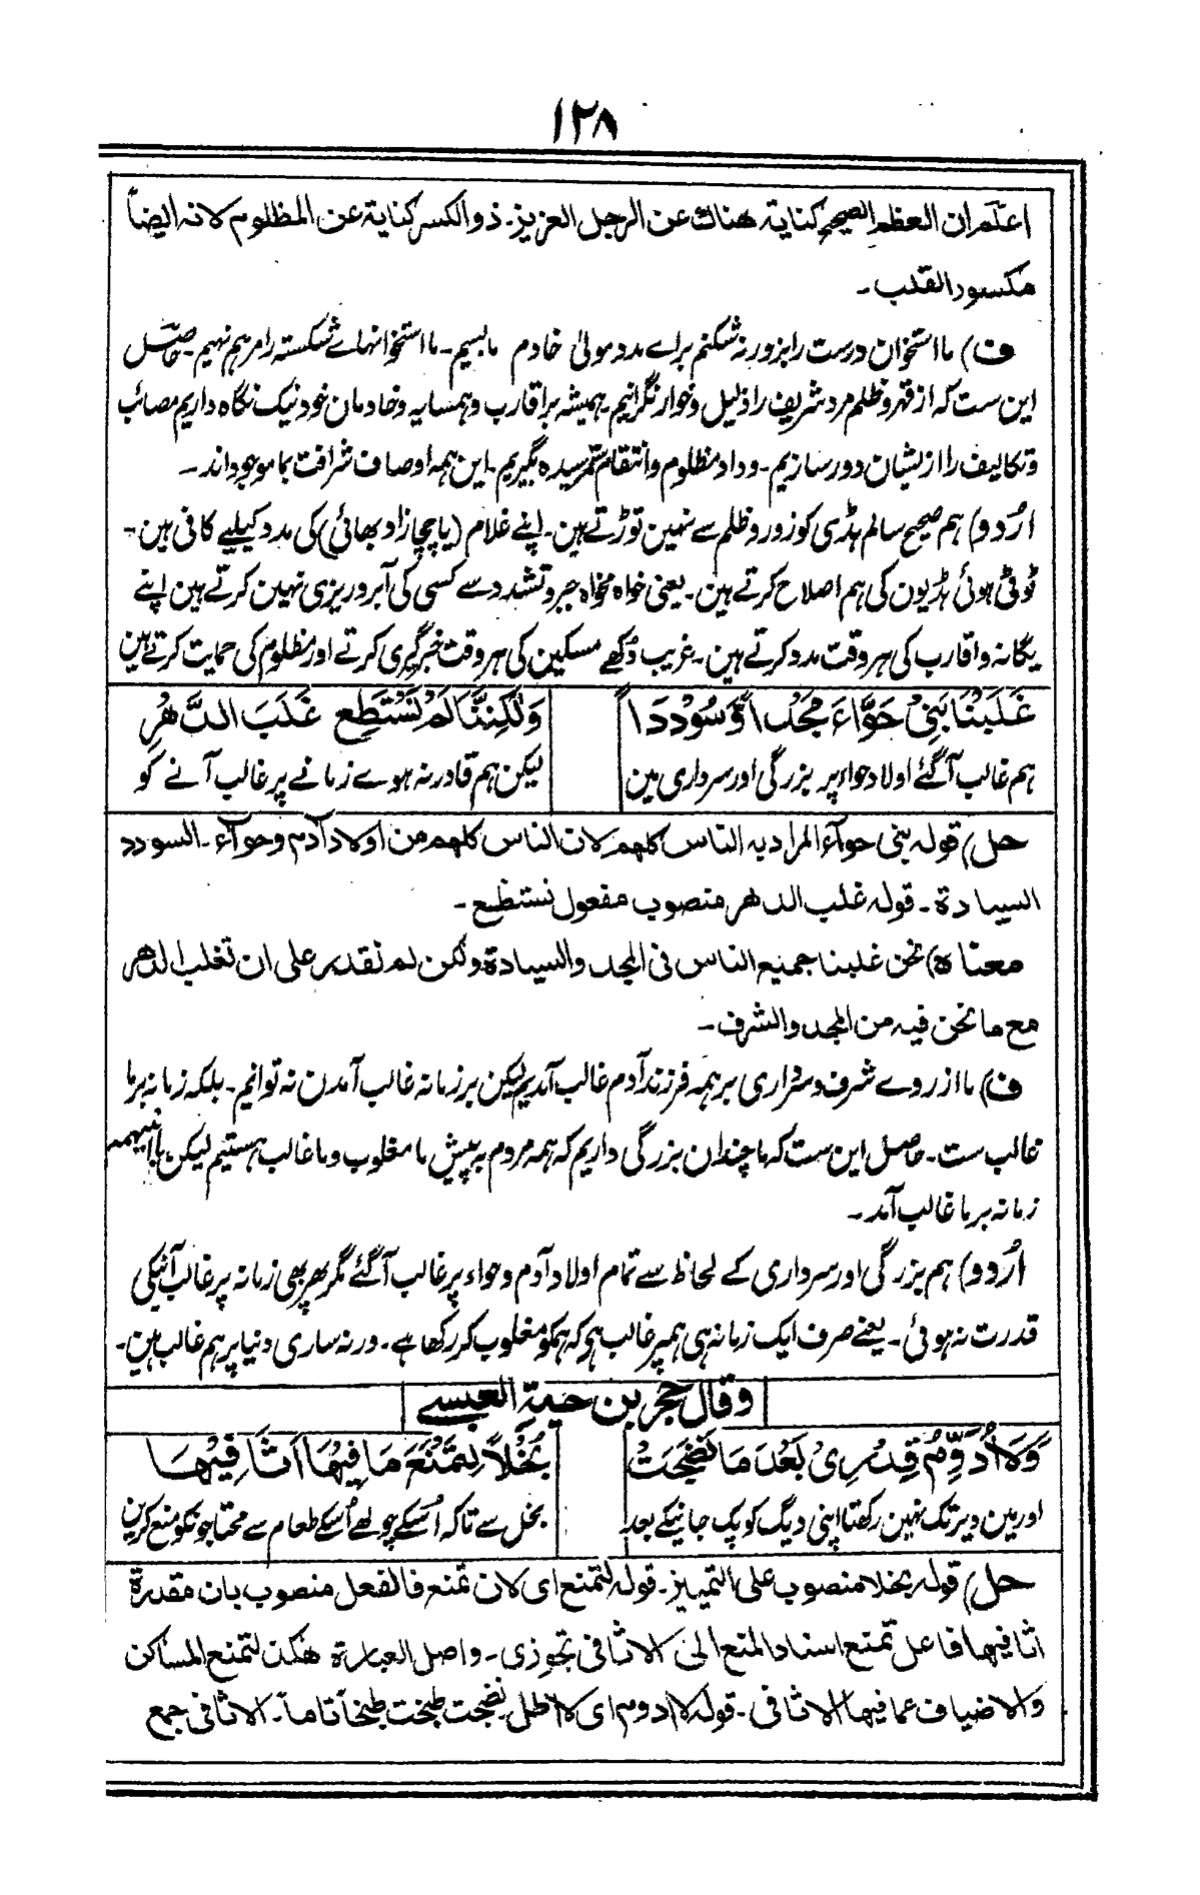 ۱۲۸
اعلم ان العظم الصحیح کنایة هناك عن الرجل العزیز۔ ذو الکسر کنایة عن المظلوم لانه ایضاً
مکسور القلب۔
ف) ما استخوان درست را بزور نه شکنم برائے مدد مولیٰ خادم ما بسیم۔ ما استخوانهائے شکسته را مرهم نهیم۔ حاصل
این ست که از قهر و ظلم مرد شریف را ذلیل و خوار نگردانیم۔ همیشه بر اقارب و همسایه و خادمان خود نیک نگاه داریم مصائب
و تکالیف را از یشان دور سازیم۔ و داد مظلوم و انتقام ستمرسیده بگیریم۔ این همه اوصاف شرافت بما موجود اند۔
اُردو) ہم صحیح سالم ہڈی کو زور و ظلم سے نہین توڑتے ہین۔ اپنے غلام (یا چچازاد بھائی) کی مدد کیلیے کافی ہین۔
ٹوٹی ہوئی ہڈیون کی ہم اصلاح کرتے ہین۔ یعنی خواہ مخواہ جبر و تشدد سے کسی کی آبروریزی نہین کرتے ہین اپنے
یگانہ و اقارب کی ہر وقت مدد کرتے ہین۔ غریب دُکھے مسکین کی ہر وقت خبرگیری کرتے اور مظلوم کی حمایت کرتے ہین
غَلَبْنَا بَنِیْ حَوَّاءَ مَجْدًا وَّسُوْدَدًا وَلٰکِنَّنَا لَمْ نَسْتَطِعْ غَلَبَ الدَّهْرِ
ہم غالب آگئے اولاد حواء پر بزرگی اور سرداری مین لیکن ہم قادر نہ ہوے زمانے پر غالب آنے کو
حل) قوله بنی حوآء المراد به الناس کلهم لان الناس کلهم من اولاد آدم وحوآء۔ السودد
السیادة۔ قوله غلب الدهر منصوب مفعول نستطع۔
معناه) نحن غلبنا جمیع الناس فی المجد والسیادة ولکن لم نقدر علی ان نغلب الدهر
مع ما نحن فیه من المجد والشرف۔
ف) ما از روے شرف و سرداری بر همه فرزند آدم غالب آمدیم لیکن بر زمانه غالب آمدن نه توانیم۔ بلکه زمانه بر ما
غالب ست۔ حاصل این ست که ما چندان بزرگی داریم که همه مردم به پیش ما مغلوب و ما غالب هستیم لیکن با اینهمه
زمانه بر ما غالب آمد۔
اُردو) ہم بزرگی اور سرداری کے لحاظ سے تمام اولاد آدم و حواء پر غالب آگئے مگر پھر بھی زمانہ پر غالب آنیکی
قدرت نہ ہوئی۔ یعنے صرف ایک زمانہ ہی ہمپر غالب ہے کہ ہمکو مغلوب کر رکھا ہے۔ ورنہ ساری دنیا پر ہم غالب ہین۔
وقال حجر بن حیة العبسے
وَلَا اُدَوِّمُ قِدْرِیْ بَعْدَ مَا نَضِجَتْ بُخْلًا لِتَمْنَعَ مَا فِیْهَا اَثَافِیْهَا
اور مین دیر تک نہین رکھتا اپنی دیگ کو پک جانیکے بعد بخل سے تاکہ اُسکے چولھے اُسکے طعام سے محتاجونکو منع کرین
حل) قوله بخلا منصوب علی التمییز۔ قوله لتمنع ای لان تمنع فالفعل منصوب بان مقدرة
اثافیها فاعل تمنع اسناد المنع الی الاثافی تجوزی۔ واصل العبارة هکذا لتمنع المساکن
والاضیاف عما فیها الاثافی۔ قوله لا ادوم ای لا اطل نضجت طبخت طبخاً تاماً۔ الاثافی جمع